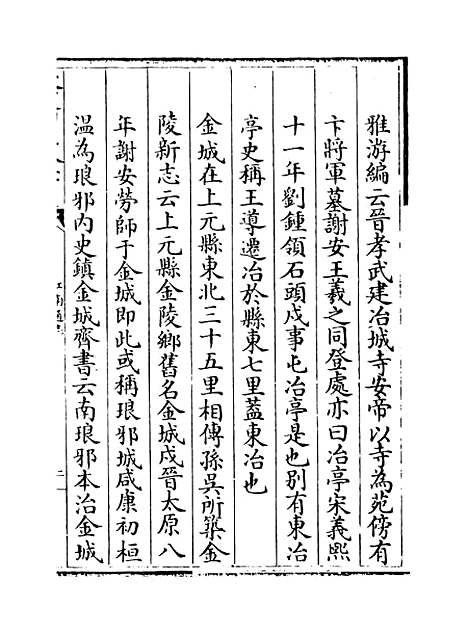 雅游編云晉孝武建冶城寺安帝以寺為苑傍有
卞將軍墓謝安王羲之同登處亦曰冶亭宋義熙
十一年劉鍾領石頭戍事屯冶亭是也別有東冶
亭史稱王導遷冶於縣東七里蓋東冶也
金城在上元縣東北三十五里相傳孫吳所築金
陵新志云上元縣金陵鄉舊名金城戍晉太原八
年謝安勞師于金城即此或稱琅邪城咸康初桓
溫為琅邪内史鎮金城齊書云南琅邪本治金城